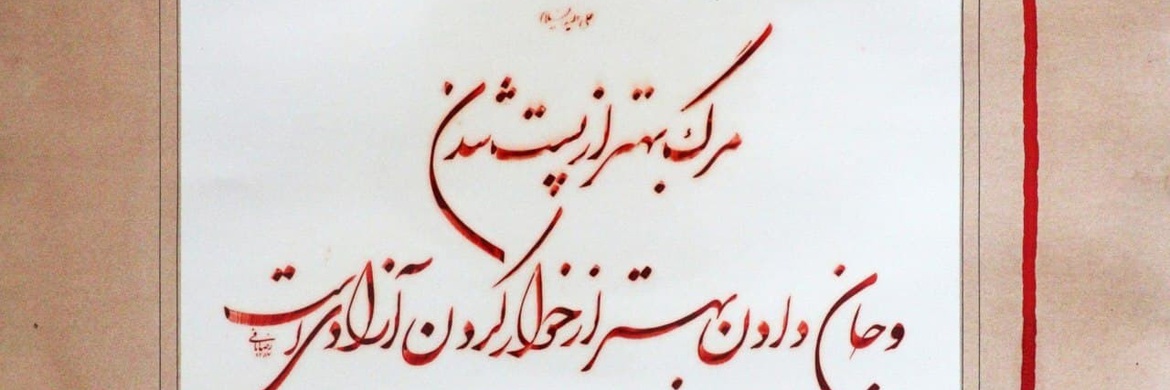 علی علیه السلام
مرگ بهتر از پست شدن
و جان دادن بهتر از خوار کردن آزادی است